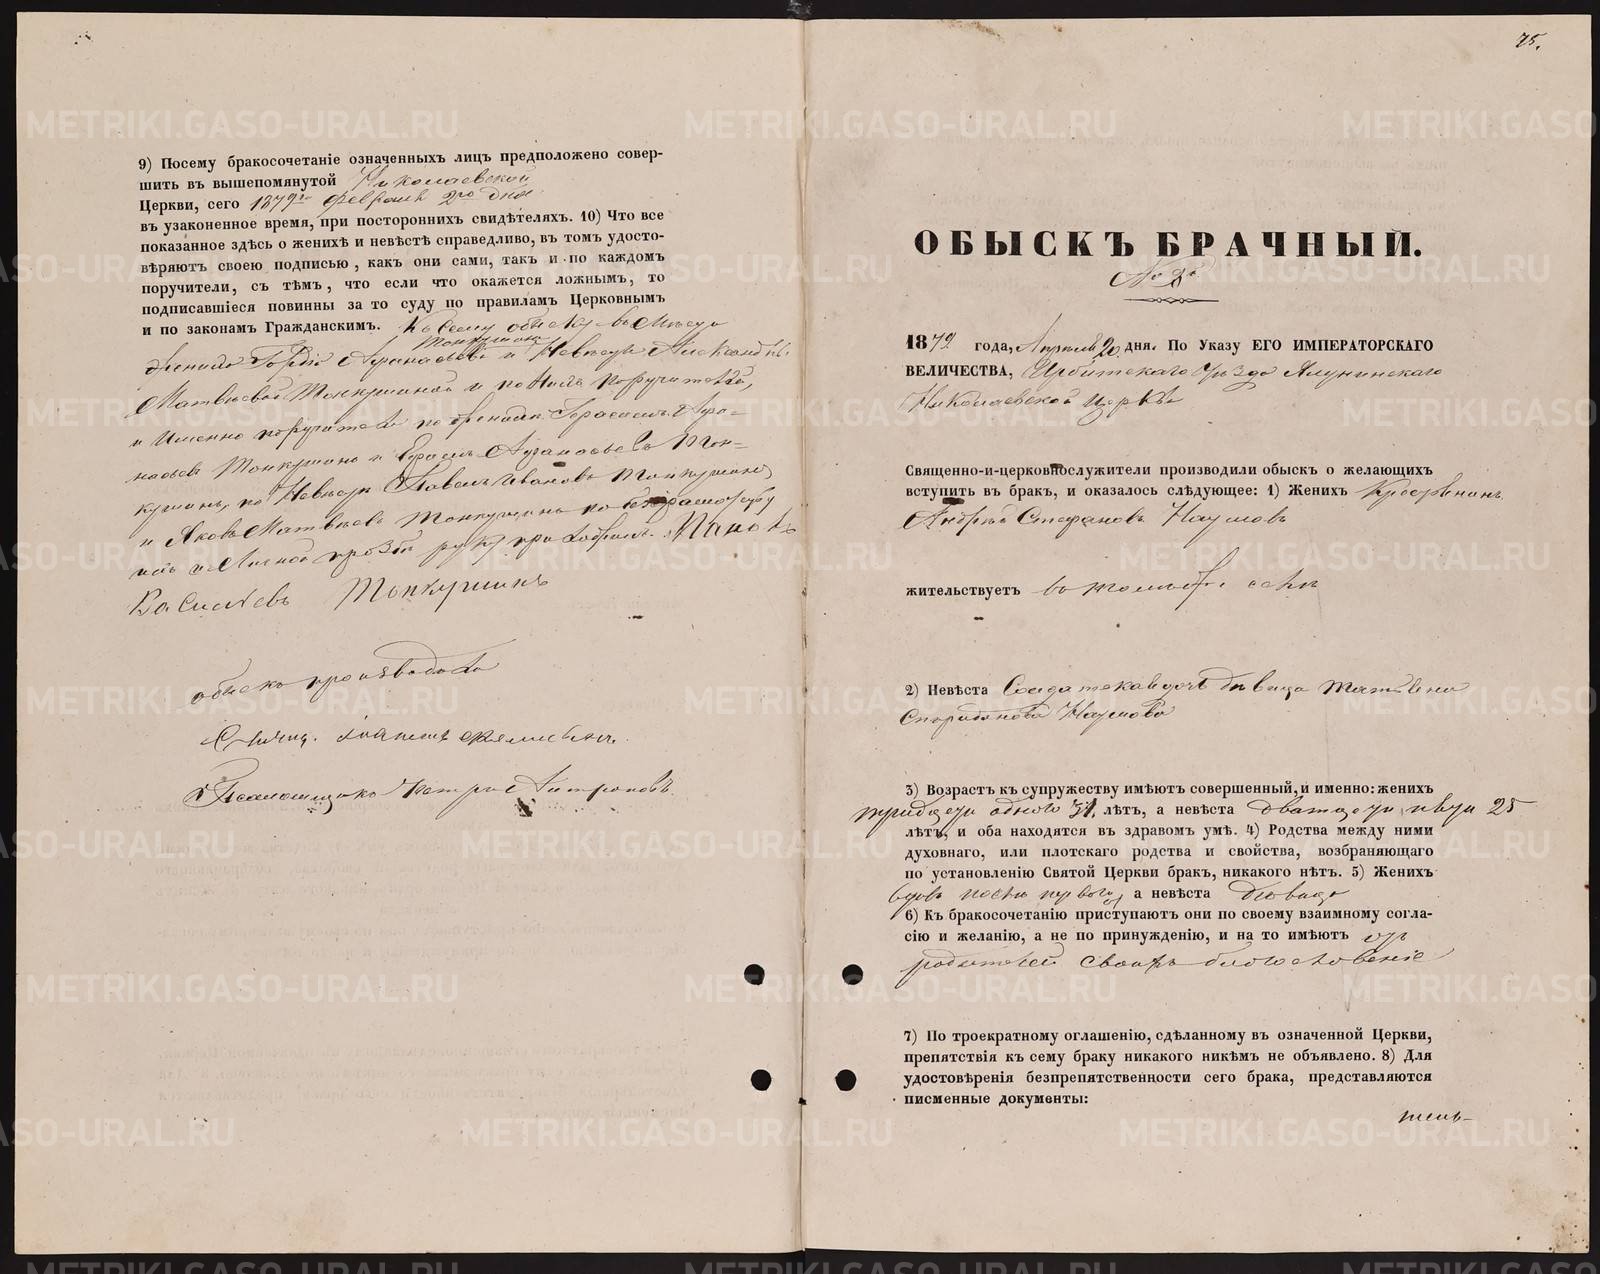 9) Посему бракосочетаніе означенныхъ лицъ предположено совер-
шить въ вышепомянутой Николаевской
Церкви, сего 1879го Февраля 2го дня
въ узаконенное время, при постороннихъ свидѣтеляхъ. 10) Что все
показанное здѣсь о женихѣ и невѣстѣ справедливо, въ томъ удосто-
вѣряютъ своею подписью, какъ они сами, такъ и по каждомъ
поручители, съ тѣмъ, что если что окажется ложнымъ, то
подписавшіеся повинны за то суду по правиламъ Церковнымъ
и по законамъ Гражданскимъ. Къ сему обыску вместо
жениха и Невесты
Матвеевой Топкушиной и по нихъ поручителей,
и Именно поручители по женихе Герасимъ Афа-
насьевъ Топкушинъ и Афанасьевъ Топ-
кушинъ, по Невесте Павелъ Ивановъ Топкушинъ
и Яковъ Матвеевъ Топкушинъ по безграмотству
ихъ и Личной прозбе руку приложилъ
Василиевъ Топкушинъ
обыскъ производили
Священ. Іоаннъ
Псаломщикъ Петръ Антроповъ
75.
ОБЫСКЪ БРАЧНЫЙ.
№ 8й
1879 года, Апреля 20 дня. По Указу ЕГО ИМПЕРАТОРСКАГО
ВЕЛИЧЕСТВА, Ирбитскаго Уезда
Николаевской Церкви
Священно-и-церковнослужители производили обыскъ о желающихъ
вступить въ бракъ, и оказалось слѣдующее: 1) Женихъ Крестьянинъ
Андрей Стефановъ Наумовъ
жительствуетъ въ томже селе
2) Невѣста Солдатская дочь девица
Спиридонова Наумова
3) Возрастъ къ супружеству имѣютъ совершенный, и именно: женихъ
тридцати одного 31. лѣтъ, а невѣста двадцати пяти 25
лѣтъ, и оба находятся въ здравомъ умѣ. 4) Родства между ними
духовнаго, или плотскаго родства и свойства, возбраняющаго
по установленію Святой Церкви бракъ, никакого нѣтъ. 5) Женихъ
вдовъ после перваго, а невѣста девица
6) Къ бракосочетанію приступаютъ они по своему взаимному согла-
сію и желанію, а не по принужденію, и на то имѣютъ отъ
родителей своихъ благословеніе
7) По троекратному оглашенію, сдѣланному въ означенной Церкви,
препятствія къ сему браку никакого никѣмъ не объявлено. 8) Для
удостовѣренія безпрепятственности сего брака, представляются
писменные документы:
METRIKI.GASO-URAL.RU